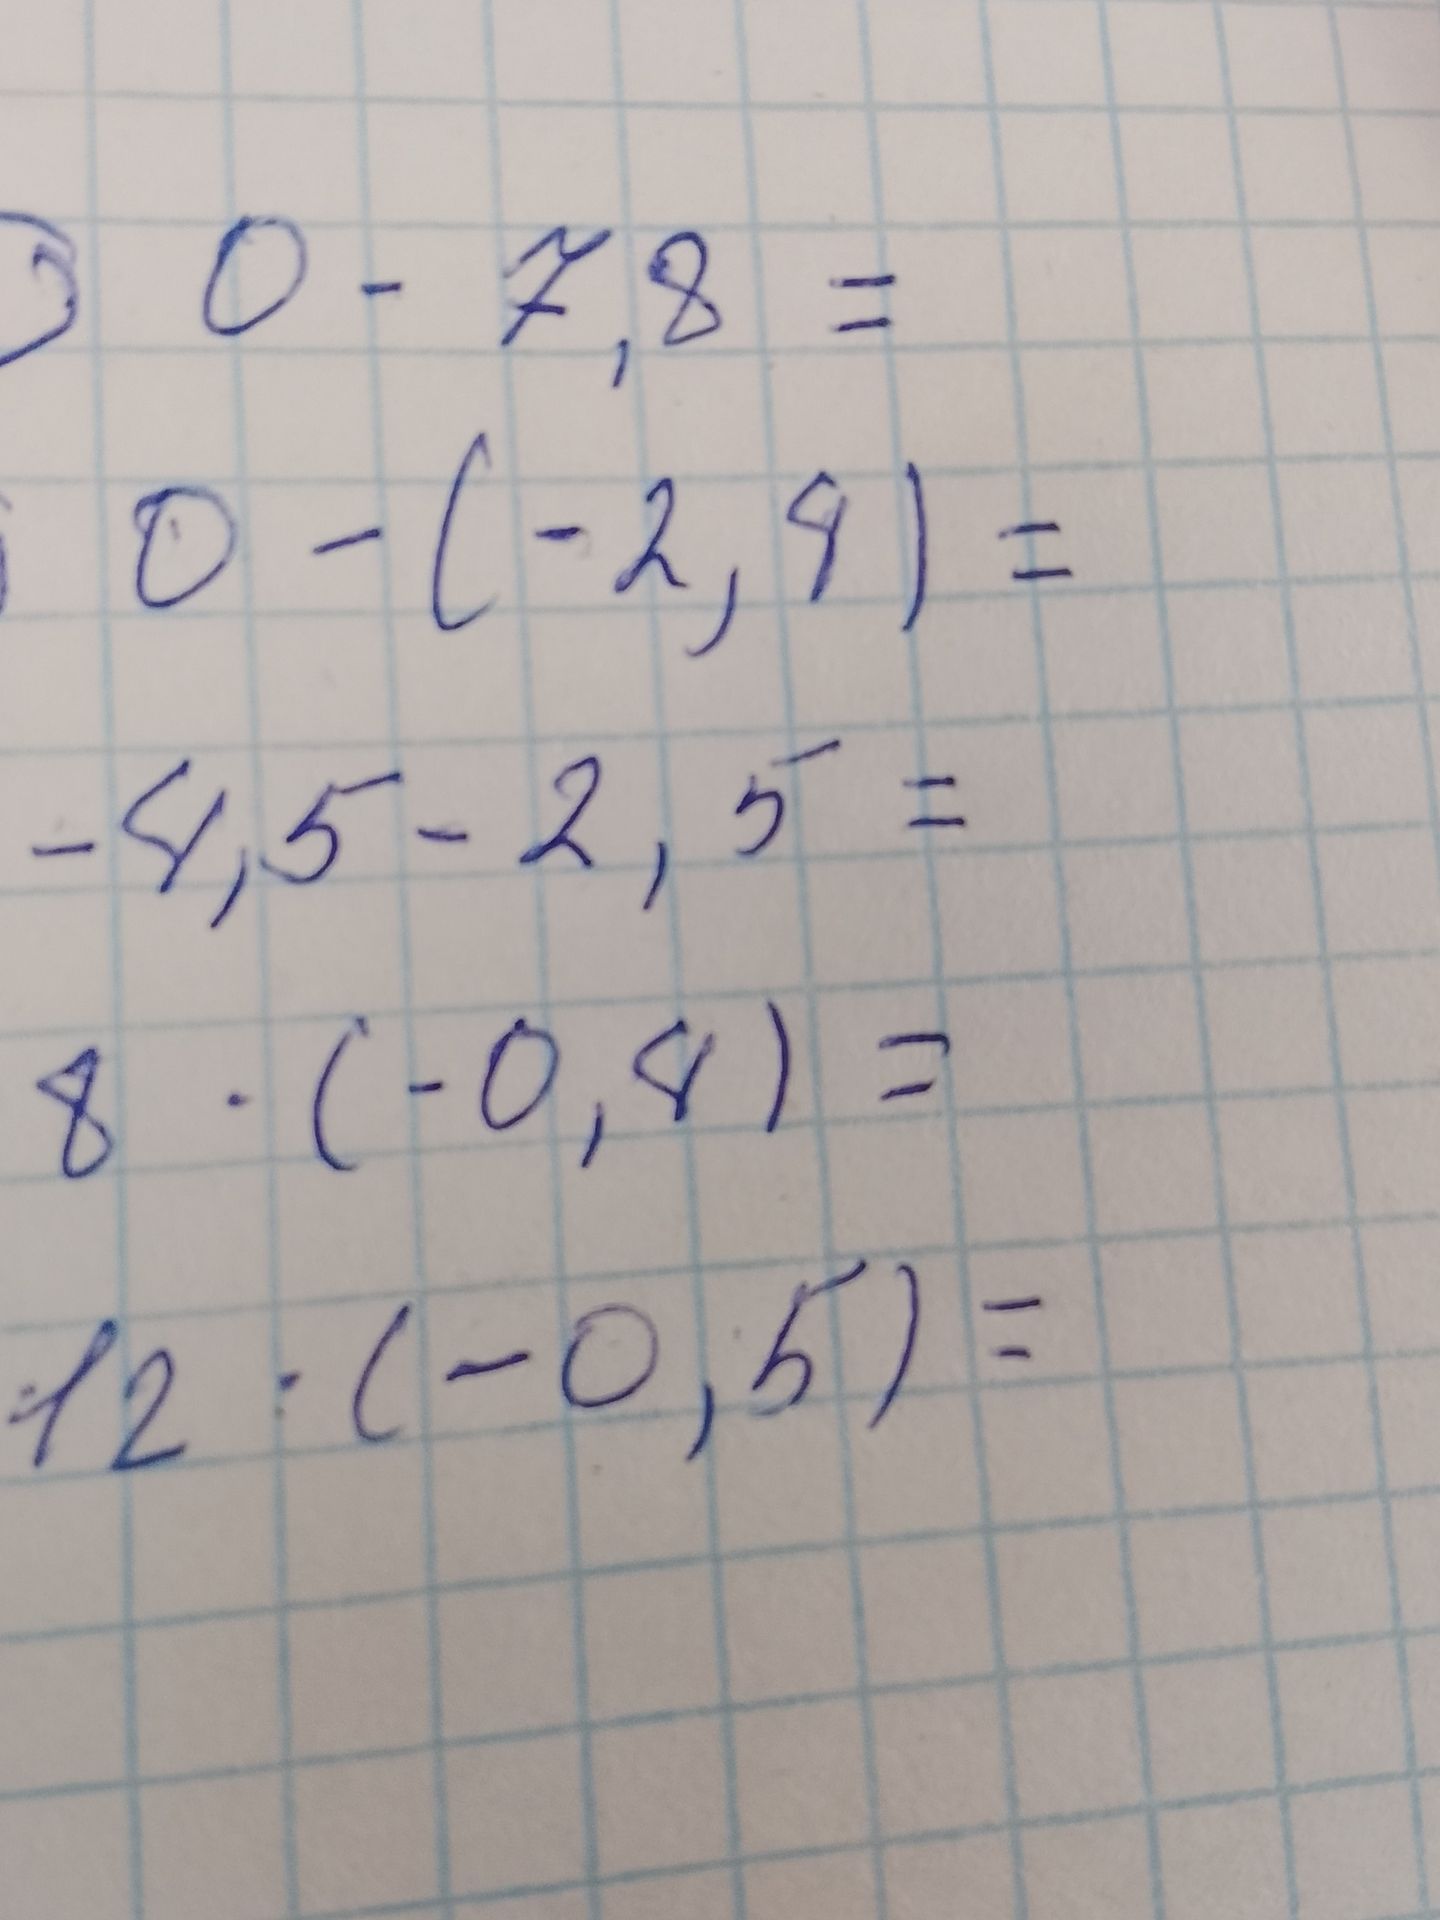 ) 0 - 7,8 =
0 - (-2,4) =
-4,5 - 2,5 =
8 · (-0,4) =
12 · (-0,5) =